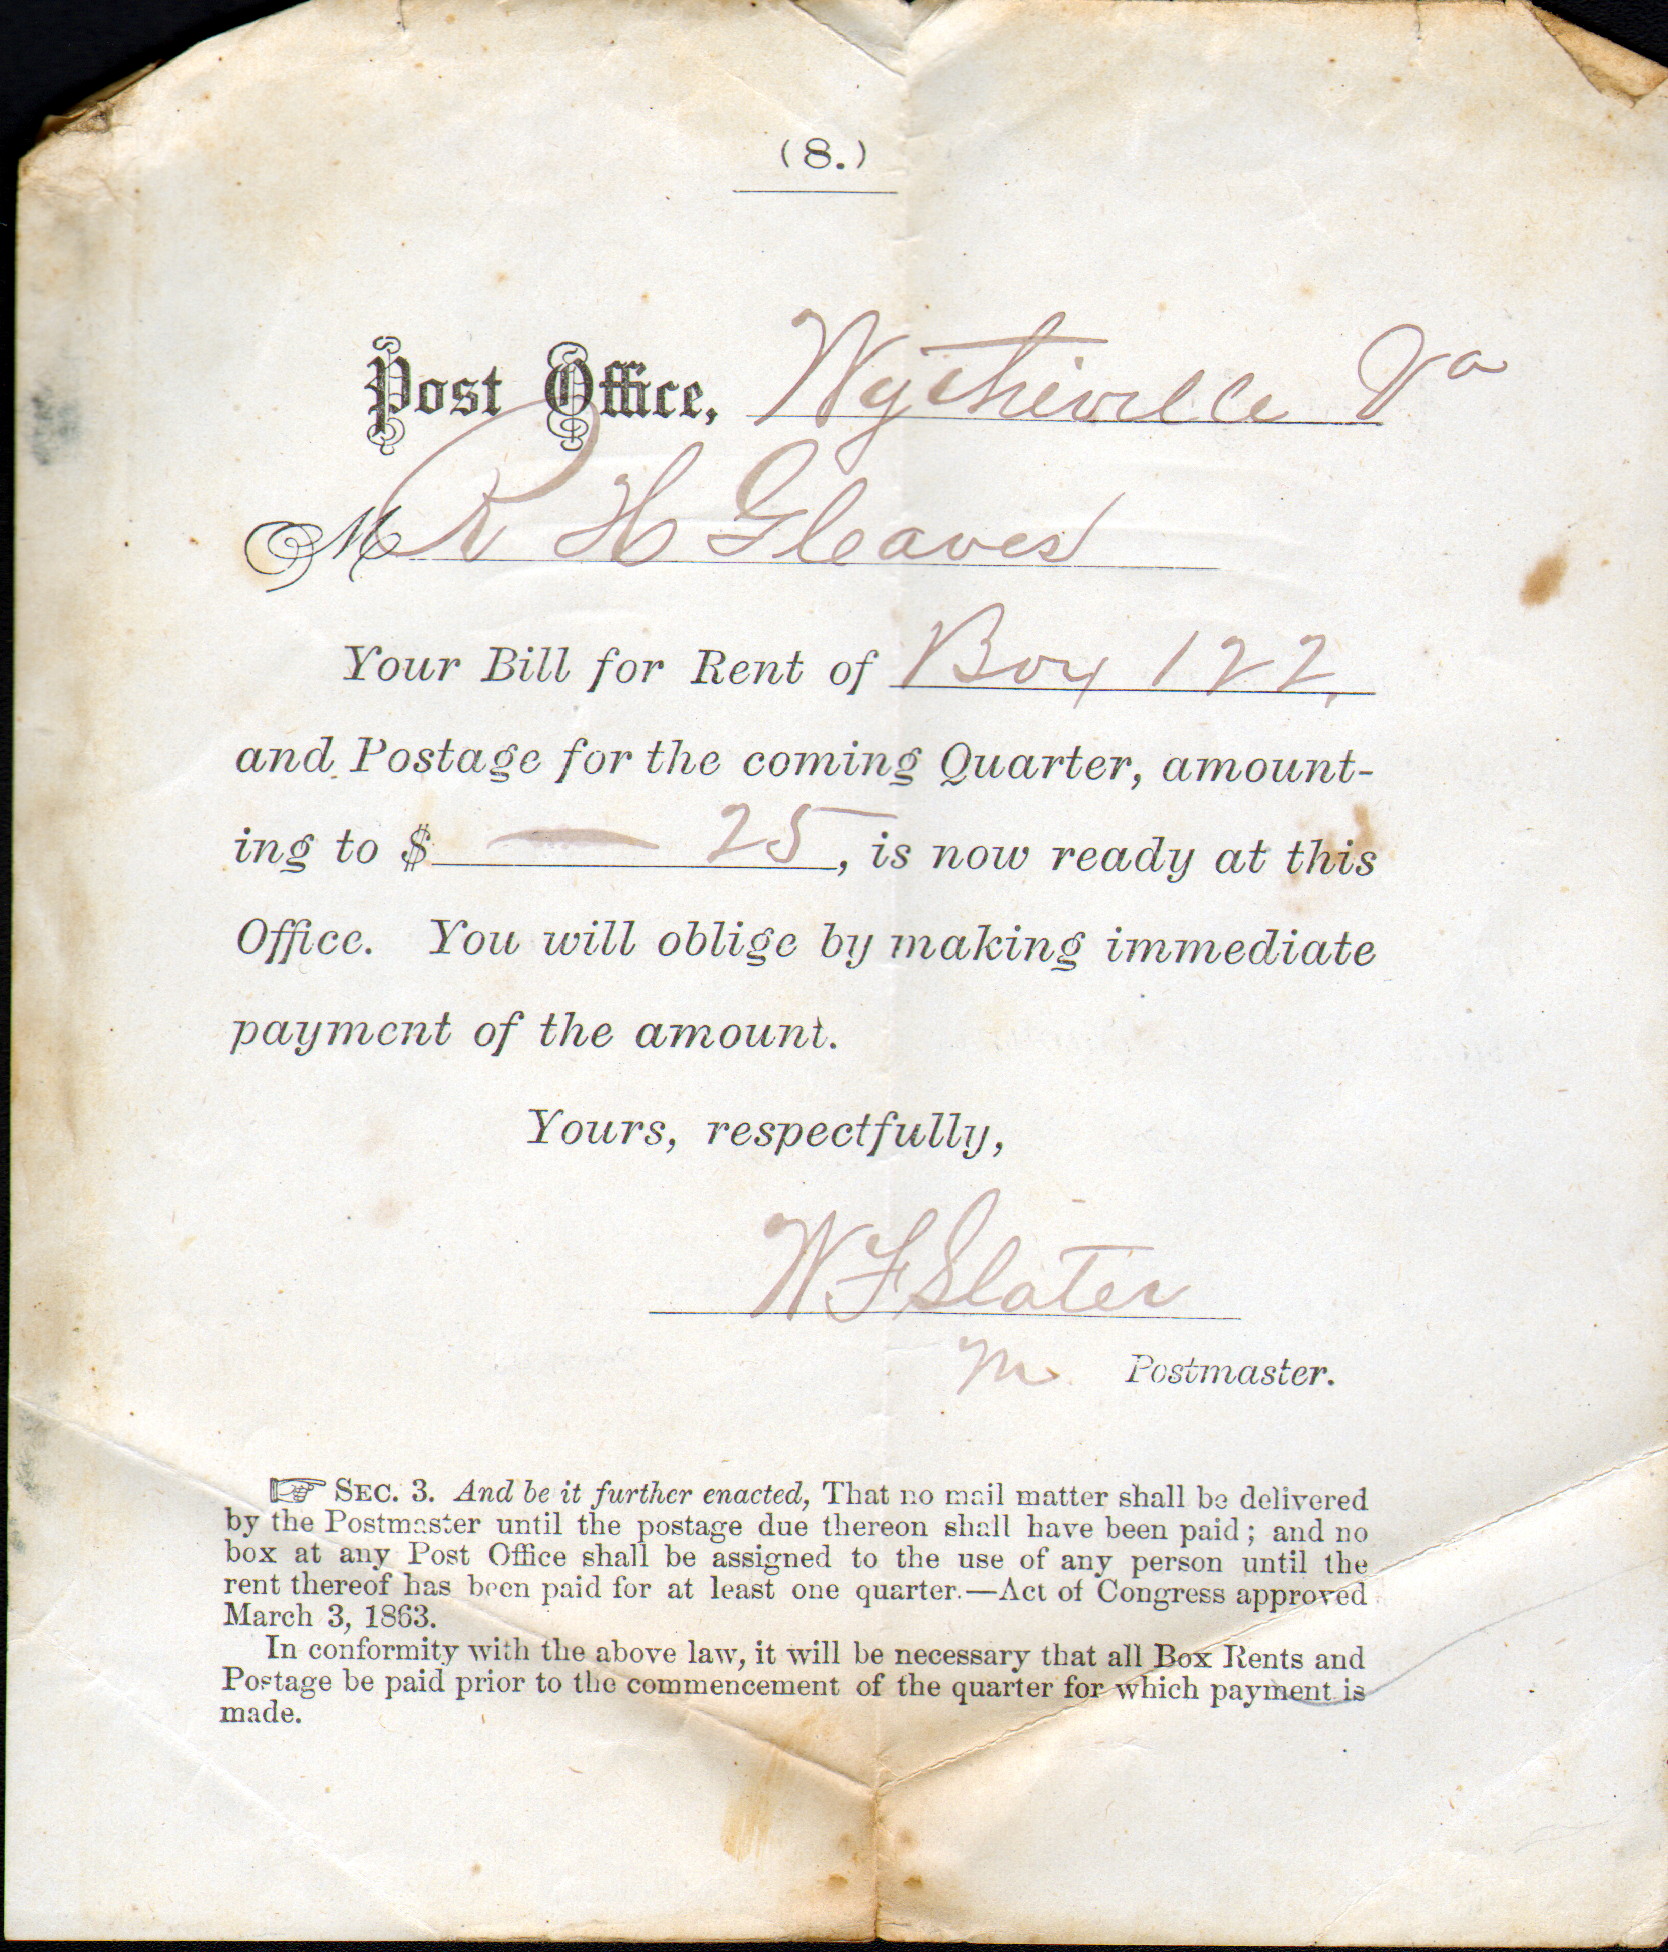 (8.)
Post Office, Wytheville Va
M R H Gleaves
Your Bill for Rent of Box 122,
and Postage for the coming Quarter, amount-
ing to $ — 25, is now ready at this
Office. You will oblige by making immediate
payment of the amount.
Yours, respectfully,
W F Slater
m Postmaster.
☞ SEC. 3. And be it further enacted, That no mail matter shall be delivered
by the Postmaster until the postage due thereon shall have been paid; and no
box at any Post Office shall be assigned to the use of any person until the
rent thereof has been paid for at least one quarter.—Act of Congress approved
March 3, 1863.
In conformity with the above law, it will be necessary that all Box Rents and
Postage be paid prior to the commencement of the quarter for which payment is
made.